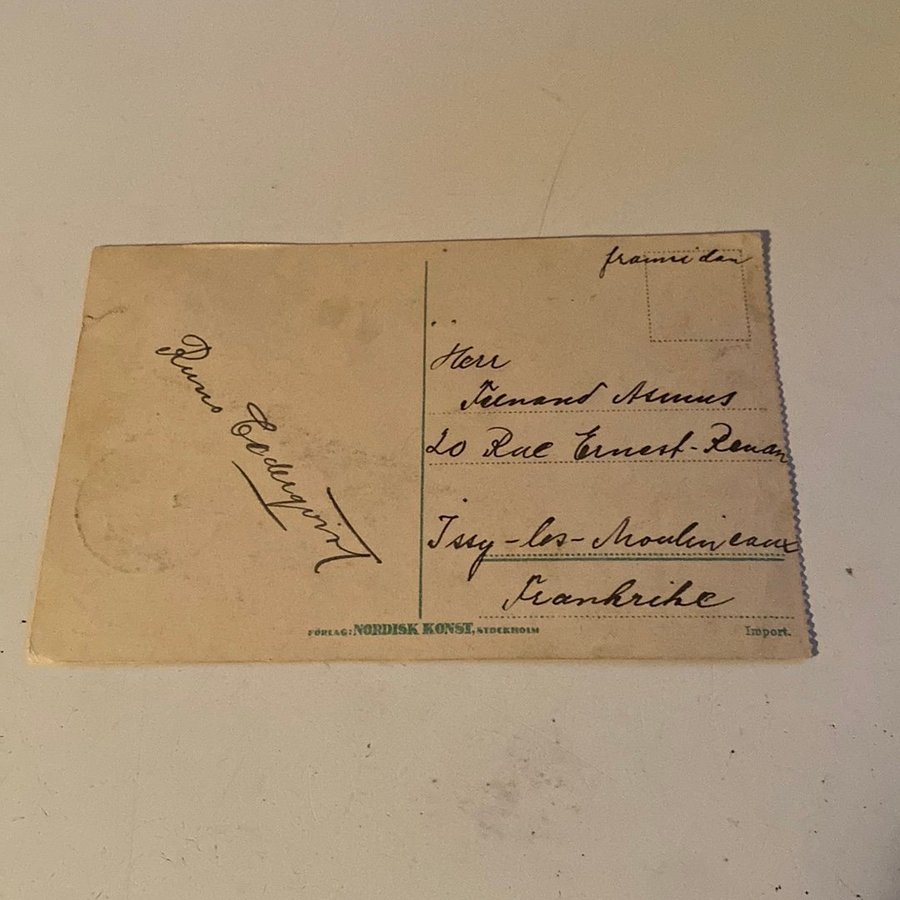 framsidan
Runo
Cederqvist
Herr
Fernand Asmus
20 Rue Ernest-Renan
Issy-les-Moulineaux
Frankrike
FÖRLAG: NORDISK KONST, STOCKHOLM
Import.